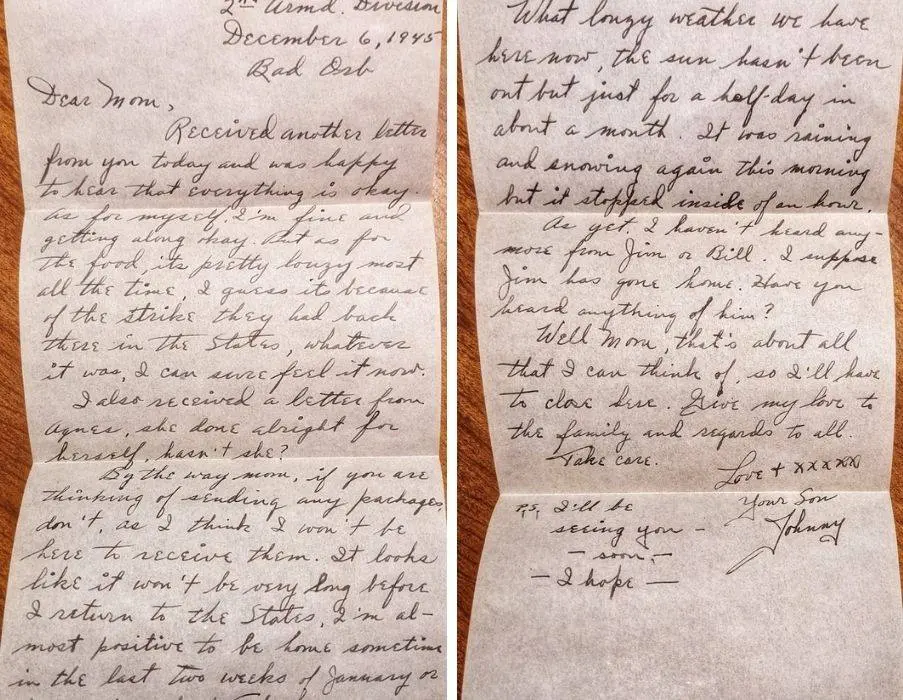 2nd Armd. Division
December 6, 1945
Bad Orb
Dear Mom,
Received another letter
from you today and was happy
to hear that everything is okay.
As for myself, I'm fine and
getting along okay. But as for
the food, its pretty louzy most
all the time, I guess it because
of the strike they had back
there in the States, whatever
it was, I can sure feel it now.
I also received a letter from
Agnes, she done alright for
herself, hasn't she?
By the way mom, if you are
thinking of sending any packages,
don't, as I think I won't be
here to receive them. It looks
like it won't be very long before
I return to the States, I'm al-
most positive to be home sometime
in the last two weeks of January or
What louzy weather we have
here now, the sun hasn't been
out but just for a half-day in
about a month. It was raining
and snowing again this morning
but it stopped inside of an hour.
As yet, I haven't heard any-
more from Jim or Bill. I suppose
Jim has gone home. Have you
heard anything of him?
Well Mom, that's about all
that I can think of, so I'll have
to close here. Give my love to
the family and regards to all.
Take care.
Love + xxxxx
Your Son
Johnny
P.S. I'll be
seeing you -
- soon, -
- I hope -